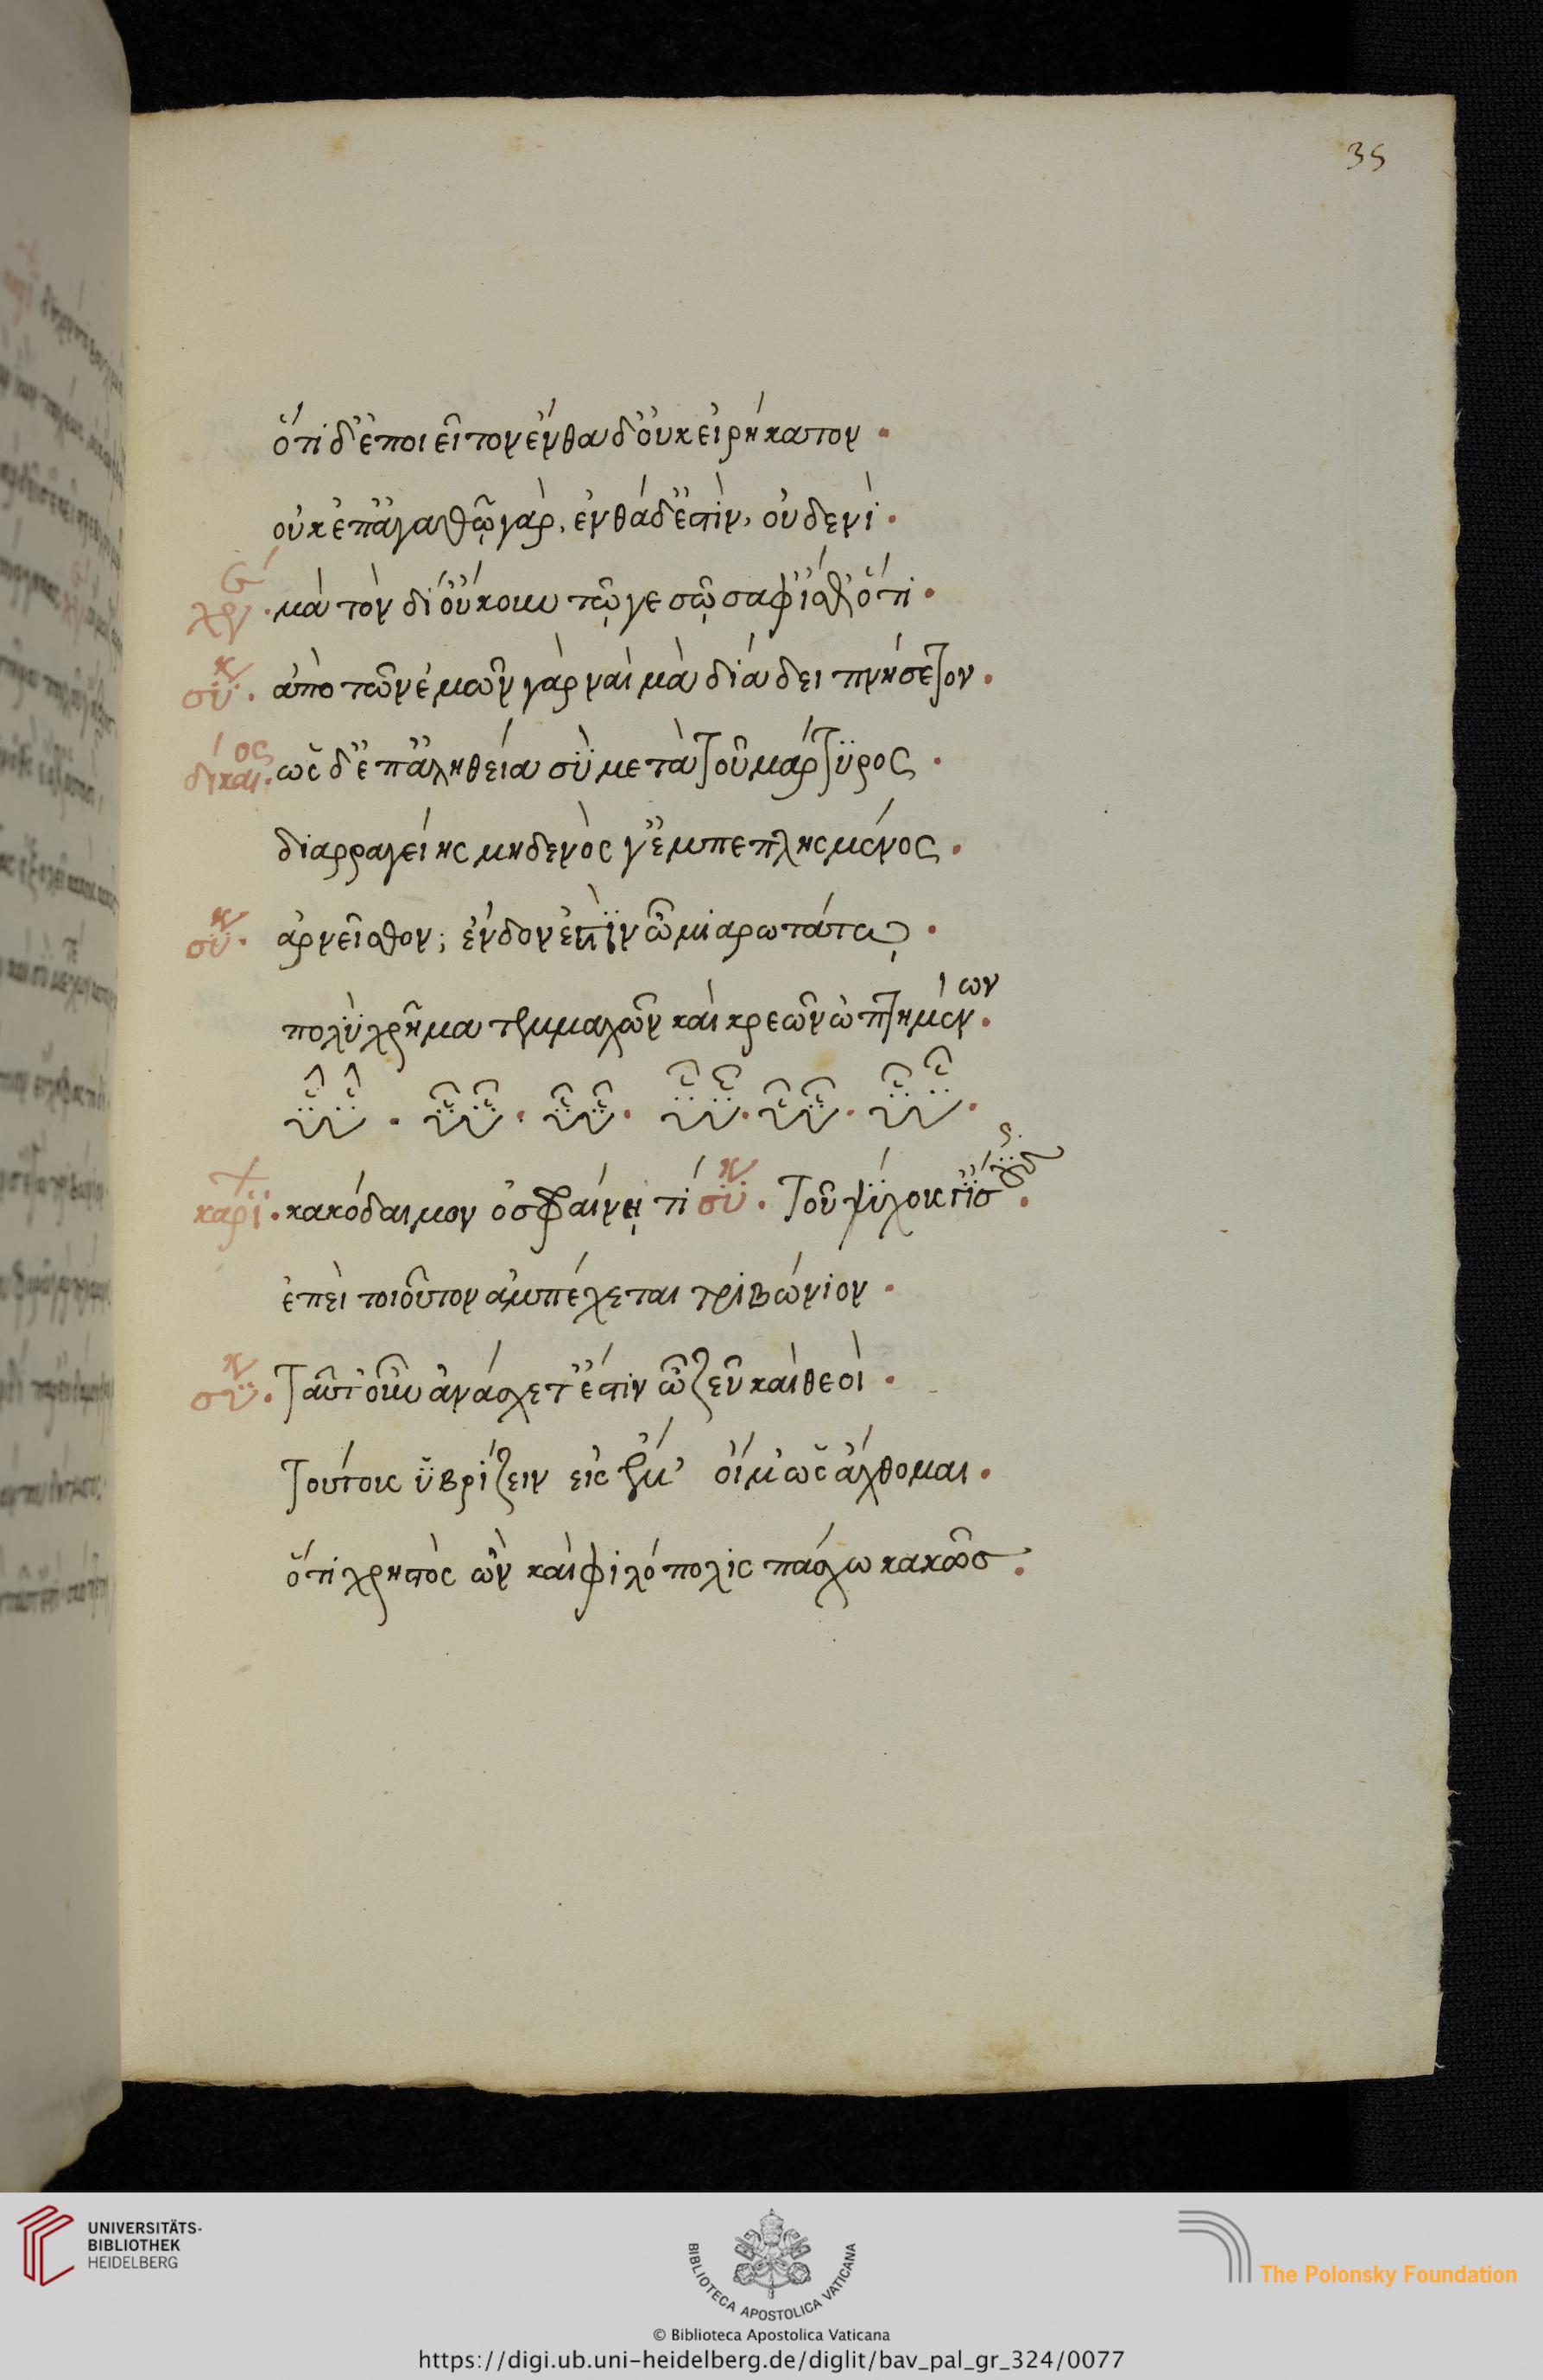 35
ὅτι δ' ἐποιεῖτον ἔνθα δ' οὐκ εἰρήκατον.
οὐκ ἐπ' ἀγαθῷ γὰρ, ἐνθάδ' ἐστὶν, οὐδενί.
χρ. μὰ τὸν δί' οὔκουν τῷ γε σῷ σάφ' ἴσθ' ὅτι.
συκ. ἀπὸ τῶν ἐμῶν γὰρ ναὶ μὰ δία δειπνήσετον.
δίκαιος. ὡς δ' ἐπ' ἀληθεία σὺ μετὰ τοῦ μάρτυρος.
διαρραγείης μηδενὸς γ' ἐμπεπλησμένος.
συκ. ἀρνεῖσθον; ἔνδον ἐστὶν ὦ μιαρωτάτω.
πολὺ χρῆμα τεμμαχῶν καὶ κρεῶν ὠπτημένων.
ὗὗ. ὗὗ. ὗὗ. ὗὗ. ὗὗ. ὗὗ.
καρί. κακόδαιμον ὀσφραίνῃ τί συκ. τοῦ ψύχους γ' ἴσως.
ἐπεὶ τοιοῦτον ἀμπέχεται τριβώνιον.
συκ. ταῦτ' οὖν ἀνάσχετ' ἐστιν ὦ ζεῦ καὶ θεοὶ.
τούτους ὑβρίζειν εἰς ἔμ' οἴμ' ὡς ἄχθομαι.
ὅτι χρηστὸς ὢν καὶ φιλόπολις πάσχω κακῶς.
UNIVERSITÄTS-
BIBLIOTHEK
HEIDELBERG
BIBLIOTECA APOSTOLICA VATICANA
The Polonsky Foundation
© Biblioteca Apostolica Vaticana
https://digi.ub.uni-heidelberg.de/diglit/bav_pal_gr_324/0077